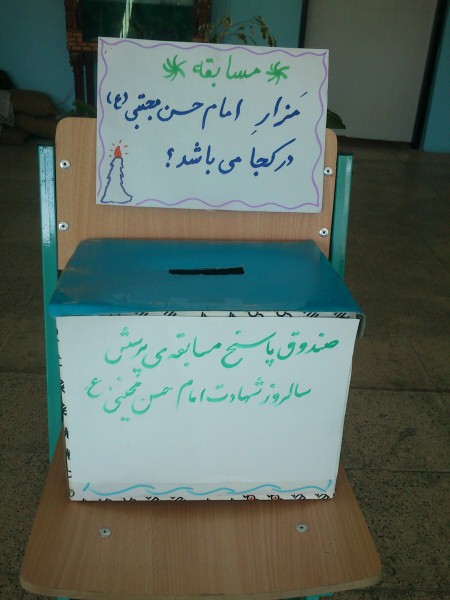 مسابقه
مَزارِ امام حسن مجتبی (ع)
در کجا می باشد؟
صندوق پاسخ مسابقه ی پرسش
سالروز شهادت امام حسن مجتبی ع